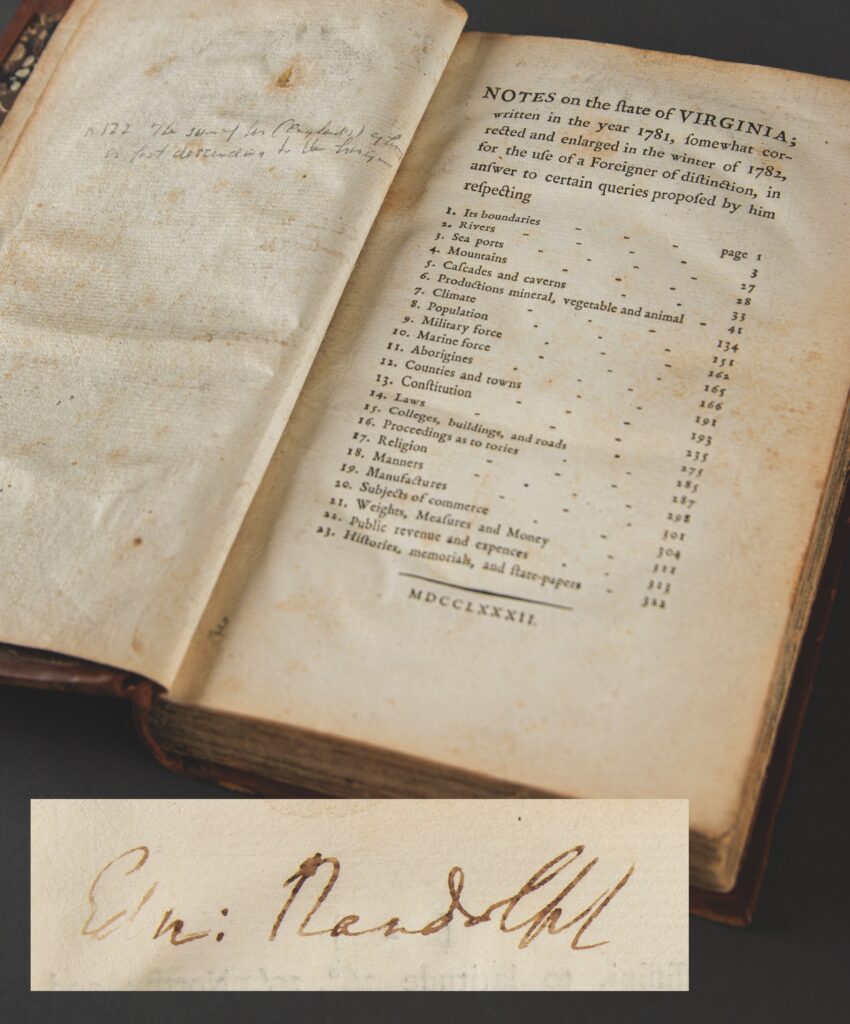 The sun of her (England's) glory
is fast descending to the horizon
NOTES on the ſtate of VIRGINIA;
written in the year 1781, ſomewhat cor-
rected and enlarged in the winter of 1782,
for the uſe of a Foreigner of diſtinction, in
anſwer to certain queries propoſed by him
reſpecting
1. Its boundaries - - - page 1
2. Rivers - - - 3
3. Sea ports - - - 27
4. Mountains - - - 28
5. Caſcades and caverns - - 33
6. Productions mineral, vegetable and animal - 41
7. Climate - - - 134
8. Population - - - 151
9. Military force - - - 162
10. Marine force - - - 165
11. Aborigines - - - 166
12. Counties and towns - - 191
13. Conſtitution - - - 193
14. Laws - - - 235
15. Colleges, buildings, and roads - 275
16. Proceedings as to tories - - 285
17. Religion - - - 287
18. Manners - - - 298
19. Manufactures - - - 301
20. Subjects of commerce - - 304
21. Weights, Meaſures and Money - 311
22. Public revenue and expences - 313
23. Hiſtories, memorials, and ſtate-papers - 322
MDCCLXXXII.
Edm: Randolph